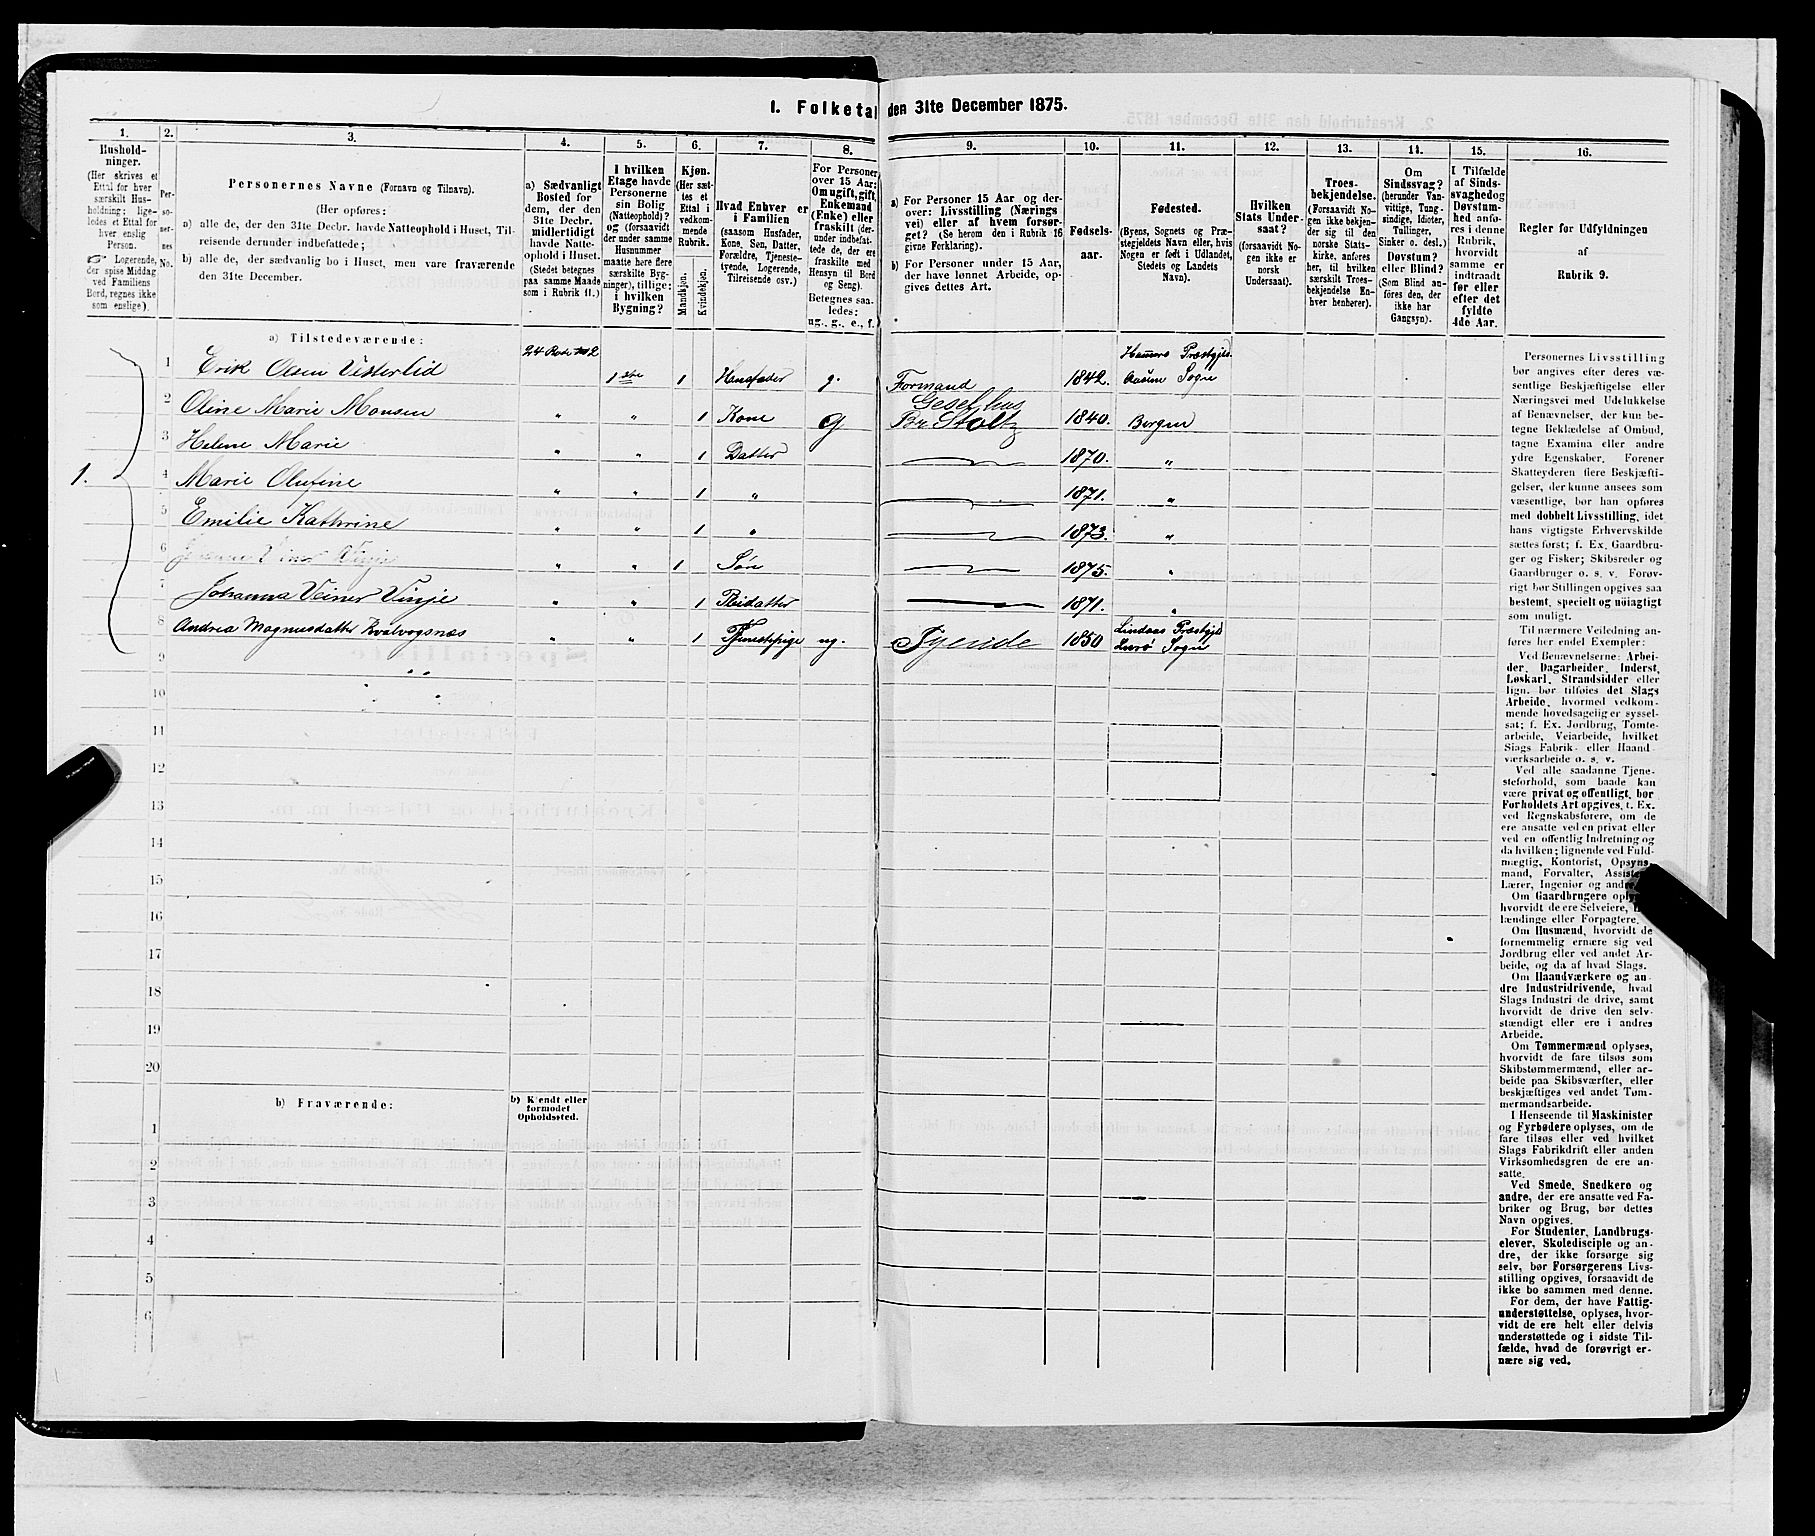 1. Folketal den 31te December 1875.
1.
Hushold-
ninger.
(Her skrives et
Ettal for hver
særskilt Hus-
holdning; lige-
ledes et Ettal for
hver enslig
Person.
☞ Logerende,
der spise Middag
ved Familiens
Bord, regnes ikke
som enslige).
2.
Per-
so-
ner-
nes
No.
3.
Personernes Navne (Fornavn og Tilnavn).
(Her opføres:
a) alle de, der den 31te Decbr. havde Natteophold i Huset, Til-
reisende derunder indbefattede;
b) alle de, der sædvanlig bo i Huset, men vare fraværende
den 31te December.
4.
a) Sædvanligt
Bosted for
dem, der den
31te Decbr.
midlertidigt
havde Natte-
ophold i Huset.
(Stedet betegnes
paa samme Maade
som i Rubrik 11.)
5.
I hvilken
Etage havde
Personerne
sin Bolig
(Natteophold)?
og (forsaavidt
der under samme
Husnummer
maatte høre flere
særskilte Byg-
ninger), tillige:
i hvilken
Bygning?
6.
Kjøn.
(Her sæt-
tes et
Ettal i
vedkom-
mende
Rubrik.
Mandkjøn.
Kvindekjøn.
7.
Hvad Enhver er
i Familien
(saasom Husfader,
Kone, Søn, Datter,
Forældre, Tjeneste-
tyende, Logerende,
Tilreisende osv.)
8.
For Personer
over 15 Aar:
Om ugift, gift,
Enkemand
(Enke) eller
fraskilt (der-
under indbefat-
tede de, der ere
fraskilte med
Hensyn til Bord
og Seng).
Betegnes saa-
ledes:
ug., g., e., f.
9.
a) For Personer 15 Aar og der-
over: Livsstilling (Nærings
vei) eller af hvem forsør-
get? (Se herom den i Rubrik 16
givne Forklaring).
b) For Personer under 15 Aar,
der have lønnet Arbeide, op-
gives dettes Art.
10.
Fødsels-
aar.
11.
Fødested.
(Byens, Sognets og Præ-
stegjeldets Navn eller, hvis
Nogen er født i Udlandet,
Stedets og Landets
Navn).
12.
Hvilken
Stats Under-
saat?
(forsaavidt No-
gen ikke er
norsk
Undersaat).
13.
Troes-
bekjendelse.
(Forsaavidt No-
gen ikke bekjen-
der sig til den
norske Stats-
kirke, anføres
her, til hvilken
særskilt Troes-
bekjendelse En-
hver henhører).
14.
Om
Sindssvag?
(herunder Van-
vittige, Tung-
sindige, Idioter,
Tullinger,
Sinker o. desl.)
Døvstum?
eller Blind?
(Som Blind an-
føres den, der
ikke har
Gangsyn).
15.
I Tilfælde
af Sinds-
svaghed og
Døvstum-
hed anfø-
res i denne
Rubrik,
hvorvidt
samme er
indtraadt
før eller
efter det
fyldte
4de Aar.
16.
Regler for Udfyldningen
af
Rubrik 9.
a) Tilstedeværende:
1.
1 Erik Olsen Vesterlid 24 Rode No 2 1 ste 1 Husfader g. Formand 1842. Hammers Præstgjld. Aasen Sogn
2 Oline Marie Monsen " " 1 Kone g Gesel. hus Br. Stoltz 1840. Bergen
3 Helene Marie " " 1 Datter 1870. "
4 Marie Olufine " " 1 " 1871. "
5 Emilie Kathrine " " 1 " 1873. "
6 " " 1 Søn 1875. "
7 Johanna Veiner Vinje " " 1 Pleidatter 1871. "
8 Andrea Magnusdatter Kvalvogsnæs " " 1 Tjenestepige ug. Tyende 1850 Lindaas Præstgjld Lurø Sogn
9 " "
10 " "
11
12
13
14
15
16
17
18
19
20
b) Fraværende:
b) Kjendt eller
formodet
Opholdssted.
1
2
3
4
5
6
Personernes Livsstilling
bør angives efter deres væ-
sentlige Beskjæftigelse eller
Næringsvei med Udelukkelse
af Benævnelser, der kun be-
tegne Beklædelse af Ombud,
tagne Examina eller andre
ydre Egenskaber. Forener
Skatteyderen flere Beskjæfti-
gelser, der kunne ansees som
væsentlige, bør han opføres
med dobbelt Livsstilling, idet
hans vigtigste Erhvervskilde
sættes først; f. Ex. Gaardbru-
ger og Fisker; Skibsreder og
Gaardbruger o. s. v. Forøv-
rigt bør Stillingen opgives saa
bestemt, specielt og nøiagtigt
som muligt.
Til nærmere Veiledning an-
føres her endel Exempler:
Ved Benævnelserne: Arbei-
der, Dagarbeider, Inderst,
Løskarl, Strandsidder eller
lign. bør tilføies det Slags
Arbeide, hvormed vedkom-
mende hovedsagelig er syssel-
sat; f. Ex. Jordbrug, Tomte-
arbeide, Veiarbeide, hvilket
Slags Fabrik- eller Haand-
værksarbeide o. s. v.
Ved alle saadanne Tjene-
steforhold, som baade kan
være privat og offentligt, bør
Forholdets Art opgives, t. Ex.
ved Regnskabsførere, om de
ere ansatte ved en privat eller
ved en offentlig Indretning og
da hvilken; lignende ved Fuld-
mægtig, Kontorist, Opsyns-
mand, Forvalter, Assistent,
Lærer, Ingeniør og andre.
Om Gaardbrugere oplyses,
hvorvidt de ere Selveiere, Lei-
lændinge eller Forpagtere.
Om Husmænd, hvorvidt de
fornemmelig ernære sig ved
Jordbrug eller ved andet Ar-
beide, og da af hvad Slags.
Om Haandværkere og an-
dre Industridrivende, hvad
Slags Industri de drive, samt
hvorvidt de drive den selv-
stændigt eller ere i andres
Arbeide.
Om Tømmermænd oplyses,
hvorvidt de fare tilsøs som
Skibstømmermænd, eller ar-
beide paa Skibsværfter, eller
beskjæftiges ved andet Tøm-
mermandsarbeide.
I Henseende til Maskinister
og Fyrbødere oplyses, om de
fare tilsøs eller ved hvilket
Slags Fabrikdrift eller anden
Virksomhedsgren de ere an-
satte.
Ved Smede, Snedkere og
andre, der ere ansatte ved Fa-
briker og Brug, bør dettes
Navn opgives.
For Studenter, Landbrugs-
elever, Skoledisciple og an-
dre, der ikke forsørge sig
selv, bør Forsørgerens Livs-
stilling opgives, forsaavidt de
ikke bo sammen med denne.
For dem, der have Fattig-
understøttelse, oplyses, hvor-
vidt de ere helt eller delvis
understøttede og i sidste Til-
fælde, hvad de forøvrigt er-
nære sig ved.